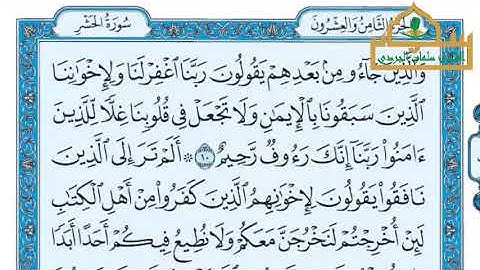 سُورَةُ الحَشْرِ
الجُزْءُ الثَّامِنُ وَالعِشْرُونَ
وَٱلَّذِينَ جَآءُو مِنۢ بَعْدِهِمْ يَقُولُونَ رَبَّنَا ٱغْفِرْ لَنَا وَلِإِخْوَٰنِنَا
ٱلَّذِينَ سَبَقُونَا بِٱلْإِيمَٰنِ وَلَا تَجْعَلْ فِى قُلُوبِنَا غِلًّا لِّلَّذِينَ
ءَامَنُوا۟ رَبَّنَآ إِنَّكَ رَءُوفٌ رَّحِيمٌ ١٠ ۞ أَلَمْ تَرَ إِلَى ٱلَّذِينَ
نَافَقُوا۟ يَقُولُونَ لِإِخْوَٰنِهِمُ ٱلَّذِينَ كَفَرُوا۟ مِنْ أَهْلِ ٱلْكِتَٰبِ
لَئِنْ أُخْرِجْتُمْ لَنَخْرُجَنَّ مَعَكُمْ وَلَا نُطِيعُ فِيكُمْ أَحَدًا أَبَدًا